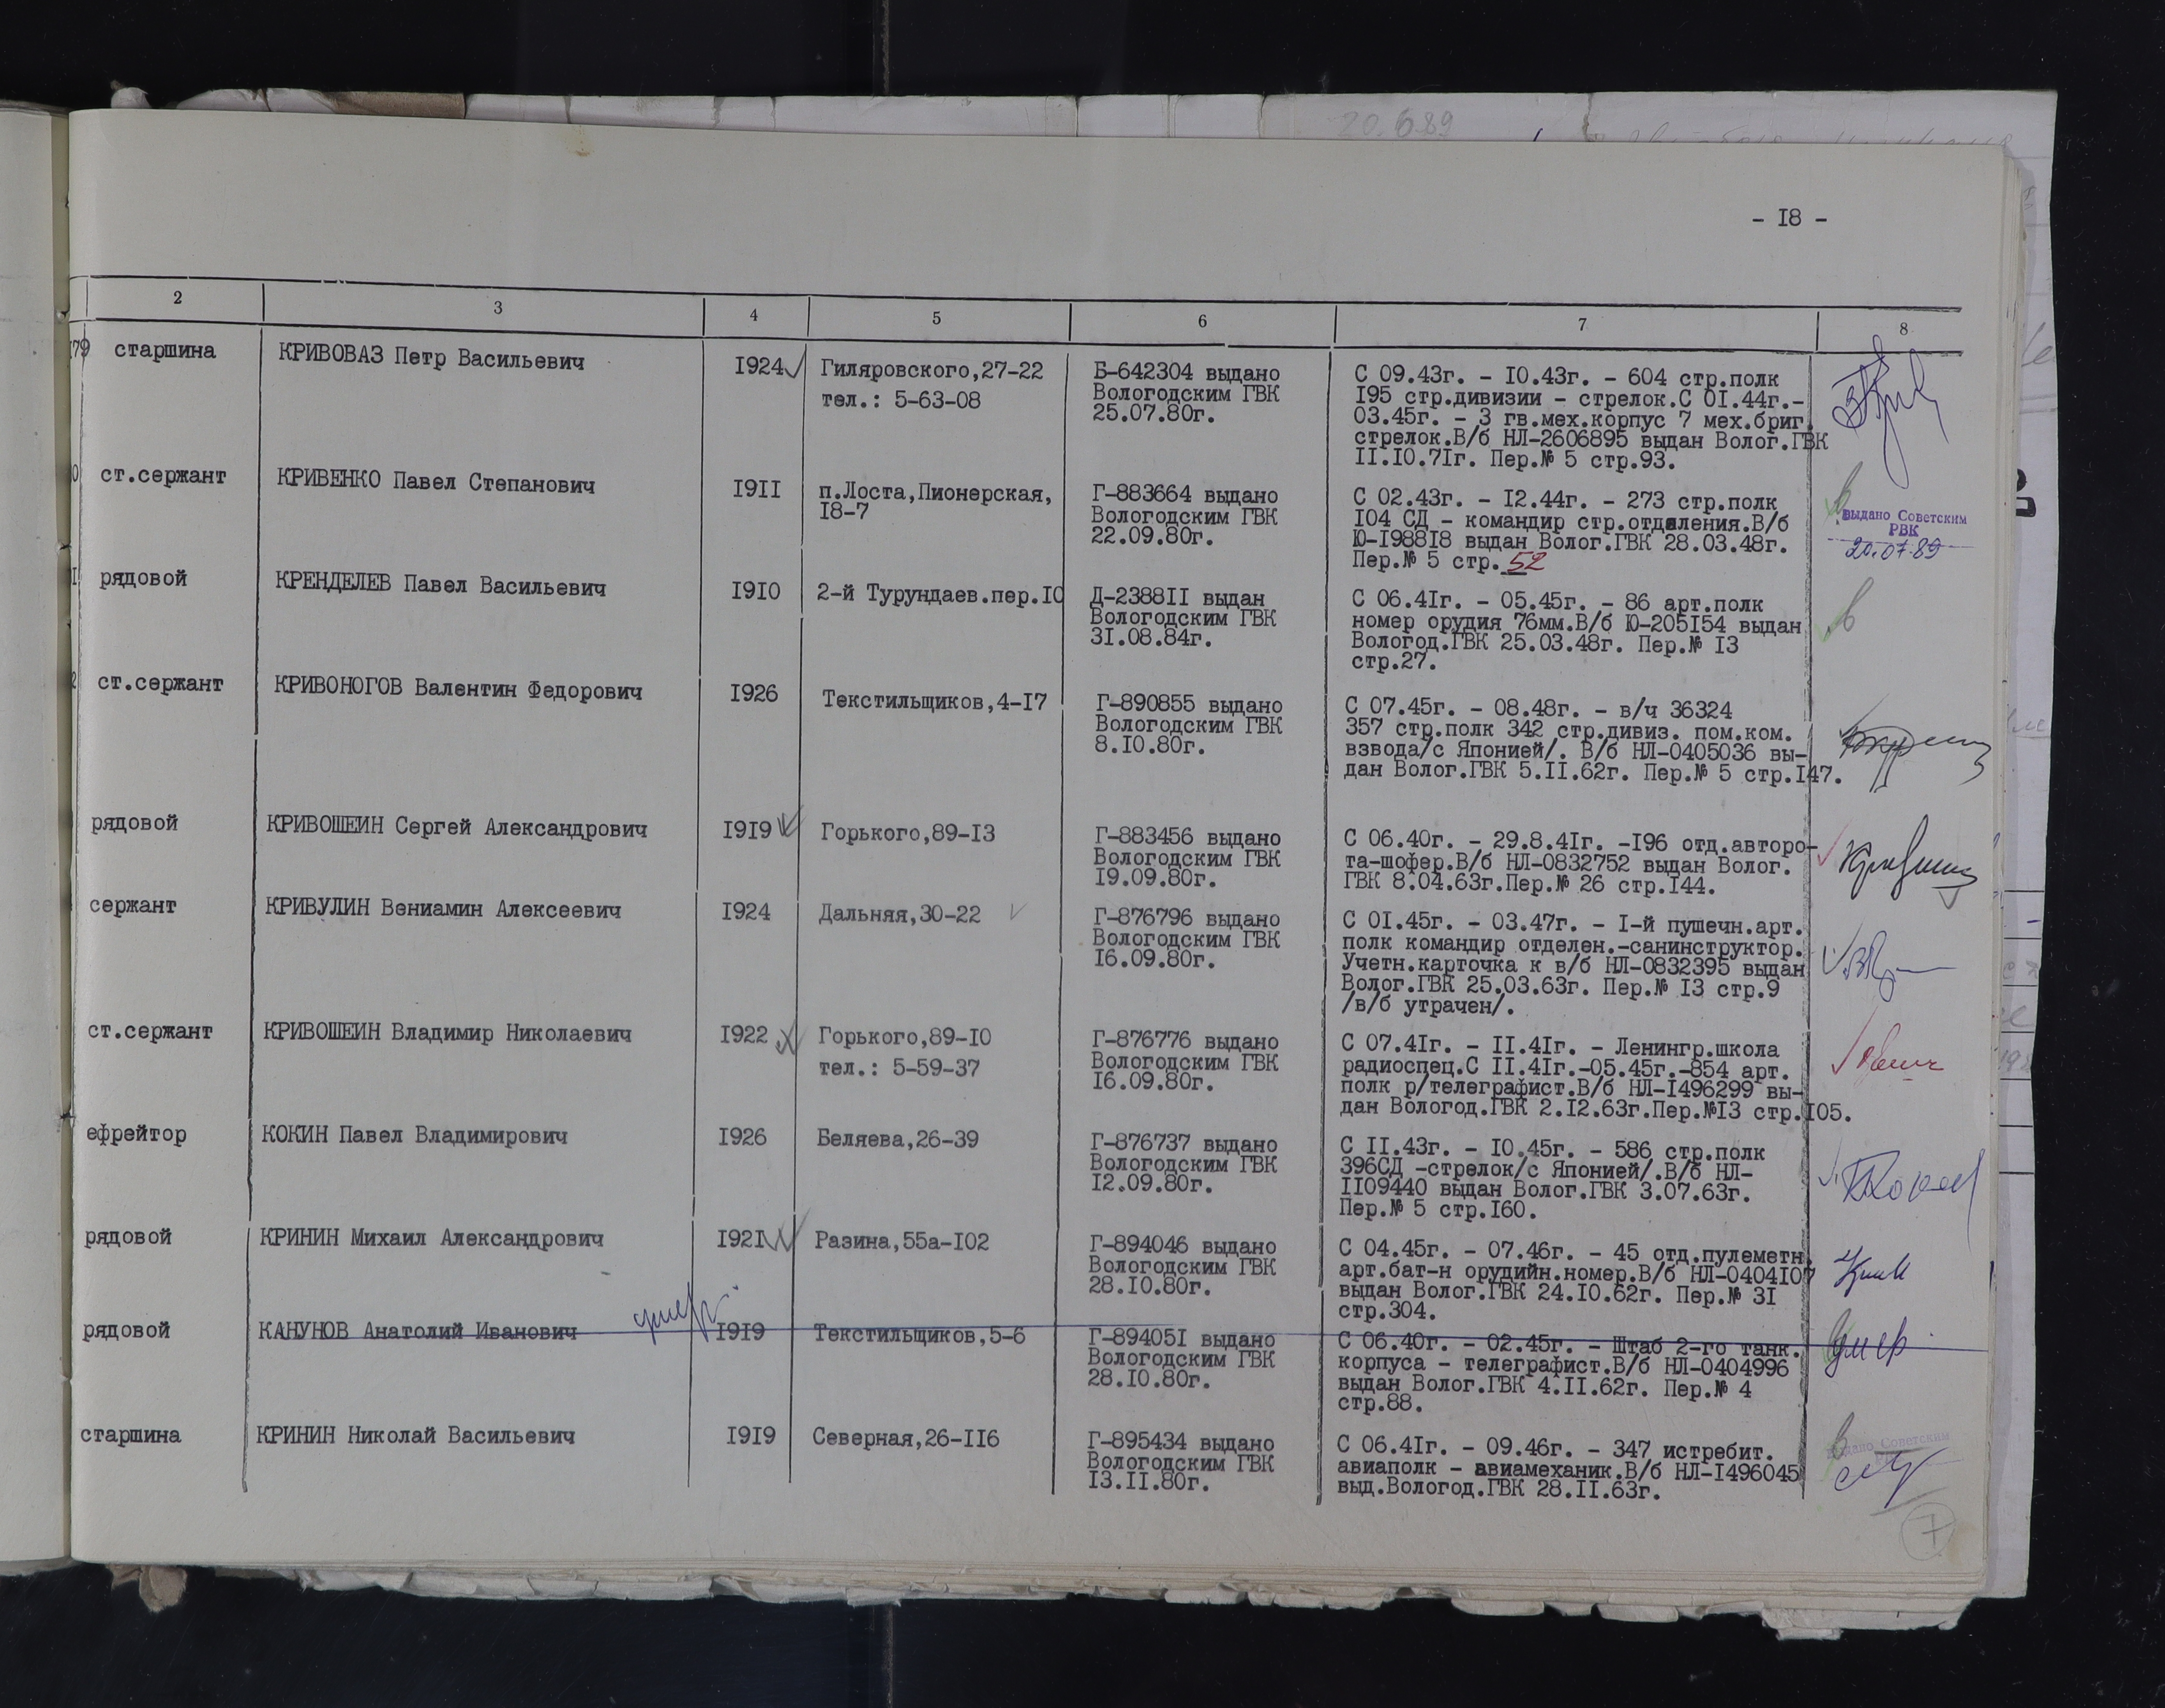 20.6.89
- I8 -
2 3 4 5 6 7 8
79 старшина КРИВОВАЗ Петр Васильевич I924 Гиляровского,27-22
тел.: 5-63-08
Б-642304 выдано
Вологодским ГВК
25.07.80г.
С 09.43г. - I0.43г. - 604 стр.полк
I95 стр.дивизии - стрелок.С 0I.44г.-
03.45г. - 3 гв.мех.корпус 7 мех.бриг.
стрелок.В/б НЛ-2606895 выдан Волог.ГВК
II.I0.7Iг. Пер.№ 5 стр.93.
0 ст.сержант КРИВЕНКО Павел Степанович I9II п.Лоста,Пионерская,
I8-7
Г-883664 выдано
Вологодским ГВК
22.09.80г.
С 02.43г. - I2.44г. - 273 стр.полк
I04 СД - командир стр.отделения.В/б
Ю-I988I8 выдан Волог.ГВК 28.03.48г.
Пер.№ 5 стр. 52
выдано Советским
РВК
20.07.89
I рядовой КРЕНДЕЛЕВ Павел Васильевич I9I0 2-й Турундаев.пер.I0
Д-2388II выдан
Вологодским ГВК
3I.08.84г.
С 06.4Iг. - 05.45г. - 86 арт.полк
номер орудия 76мм.В/б Ю-205I54 выдан
Вологод.ГВК 25.03.48г. Пер.№ I3
стр.27.
2 ст.сержант КРИВОНОГОВ Валентин Федорович I926 Текстильщиков,4-I7
Г-890855 выдано
Вологодским ГВК
8.I0.80г.
С 07.45г. - 08.48г. - в/ч 36324
357 стр.полк 342 стр.дивиз. пом.ком.
взвода/с Японией/. В/б НЛ-0405036 вы-
дан Волог.ГВК 5.II.62г. Пер.№ 5 стр.I47.
рядовой КРИВОШЕИН Сергей Александрович I9I9 Горького,89-I3
Г-883456 выдано
Вологодским ГВК
I9.09.80г.
С 06.40г. - 29.8.4Iг. -I96 отд.авторо-
та-шофер.В/б НЛ-0832752 выдан Волог.
ГВК 8.04.63г.Пер.№ 26 стр.I44.
сержант КРИВУЛИН Вениамин Алексеевич I924 Дальняя,30-22
Г-876796 выдано
Вологодским ГВК
I6.09.80г.
С 0I.45г. - 03.47г. - I-й пушечн.арт.
полк командир отделен.-санинструктор.
Учетн.карточка к в/б НЛ-0832395 выдан
Волог.ГВК 25.03.63г. Пер.№ I3 стр.9
/в/б утрачен/.
ст.сержант КРИВОШЕИН Владимир Николаевич I922 Горького,89-I0
тел.: 5-59-37
Г-876776 выдано
Вологодским ГВК
I6.09.80г.
С 07.4Iг. - II.4Iг. - Ленингр.школа
радиоспец.С II.4Iг.-05.45г.-854 арт.
полк р/телеграфист.В/б НЛ-I496299 вы-
дан Вологод.ГВК 2.I2.63г.Пер.№I3 стр.I05.
ефрейтор КОКИН Павел Владимирович I926 Беляева,26-39
Г-876737 выдано
Вологодским ГВК
I2.09.80г.
С II.43г. - I0.45г. - 586 стр.полк
396СД -стрелок/с Японией/.В/б НЛ-
II09440 выдан Волог.ГВК 3.07.63г.
Пер.№ 5 стр.I60.
рядовой КРИНИН Михаил Александрович I92I Разина,55а-I02
Г-894046 выдано
Вологодским ГВК
28.I0.80г.
С 04.45г. - 07.46г. - 45 отд.пулеметн.
арт.бат-н орудийн.номер.В/б НЛ-0404I07
выдан Волог.ГВК 24.I0.62г. Пер.№ 3I
стр.304.
умер
рядовой КАНУНОВ Анатолий Иванович I9I9 Текстильщиков,5-6
Г-89405I выдано
Вологодским ГВК
28.I0.80г.
С 06.40г. - 02.45г. - Штаб 2-го танк.
корпуса - телеграфист.В/б НЛ-0404996
выдан Волог.ГВК 4.II.62г. Пер.№ 4
стр.88.
умер
старшина КРИНИН Николай Васильевич I9I9 Северная,26-II6
Г-895434 выдано
Вологодским ГВК
I3.II.80г.
С 06.4Iг. - 09.46г. - 347 истребит.
авиаполк - авиамеханик.В/б НЛ-I496045
выд.Вологод.ГВК 28.II.63г.
выдано Советским
7